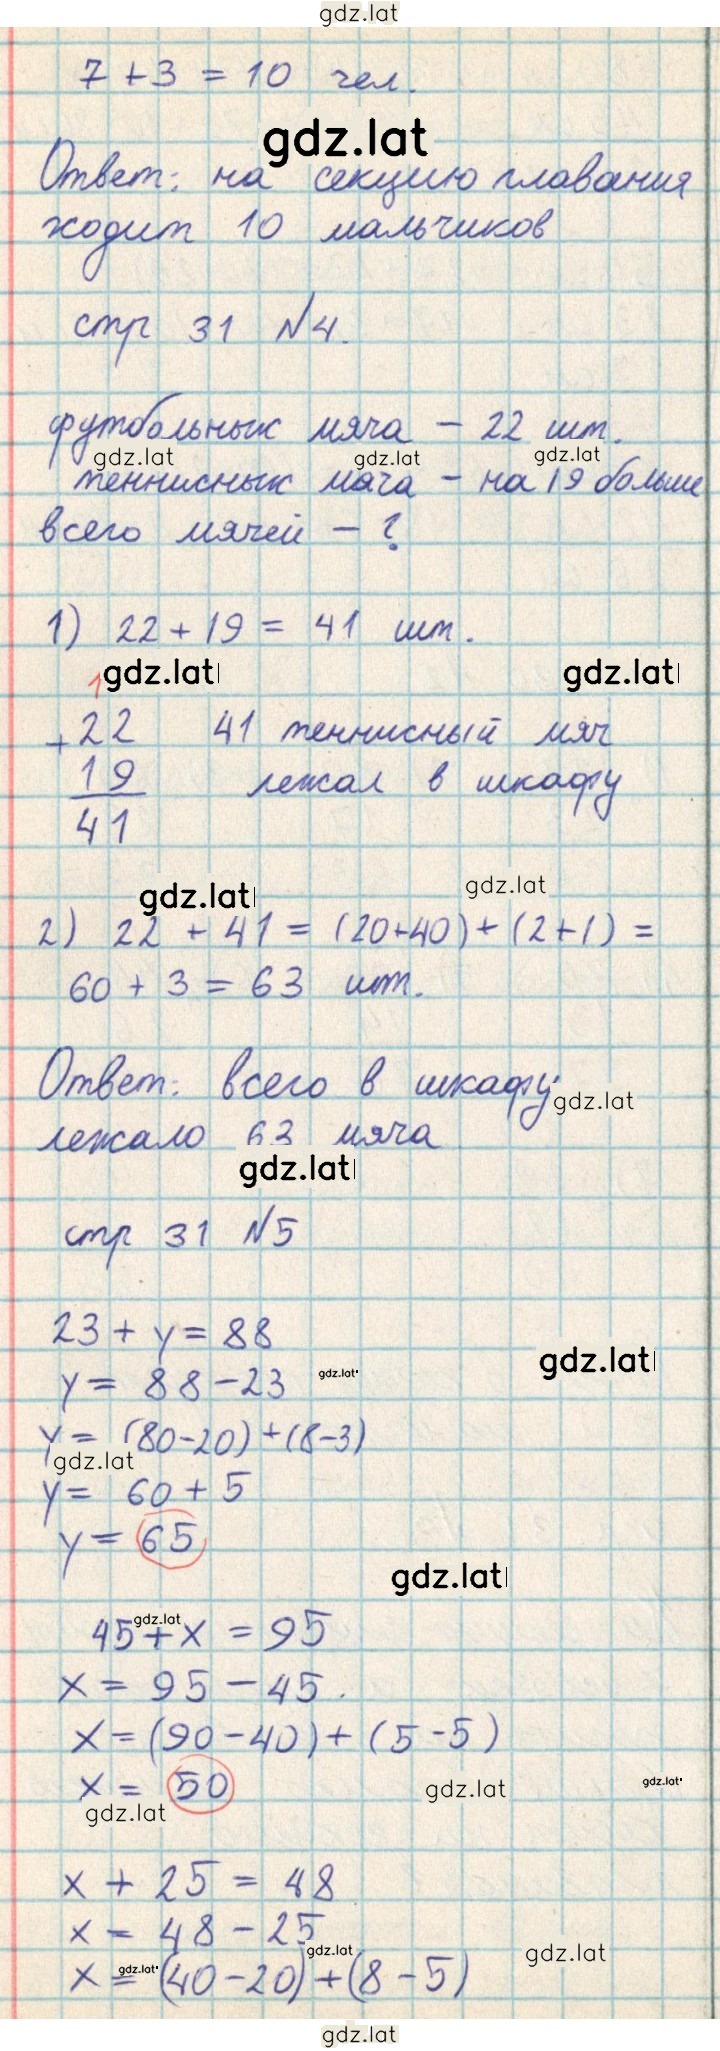 gdz.lat
7 + 3 = 10 чел.
gdz.lat
Ответ: на секцию плавания
ходит 10 мальчиков
стр 31 №4.
футбольных мяча – 22 шт.
gdz.lat gdz.lat gdz.lat
теннисных мяча – на 19 больше
всего мячей – ?
1) 22 + 19 = 41 шт.
gdz.lat gdz.lat
1
+ 22 41 теннисный мяч
19 лежал в шкафу
41
gdz.lat gdz.lat
2) 22 + 41 = (20+40) + (2+1) =
60 + 3 = 63 шт.
Ответ: всего в шкафу
gdz.lat
лежало 63 мяча
gdz.lat
стр 31 №5
23 + y = 88
gdz.lat
y = 88 – 23
gdz.lat
y = (80–20) + (8–3)
gdz.lat
y = 60 + 5
y = 65
gdz.lat
gdz.lat
45 + x = 95
x = 95 – 45.
x = (90 – 40) + (5 – 5)
x = 50
gdz.lat gdz.lat gdz.lat
x + 25 = 48
x = 48 – 25
gdz.lat gdz.lat gdz.lat
x = (40 – 20) + (8 – 5)
gdz.lat